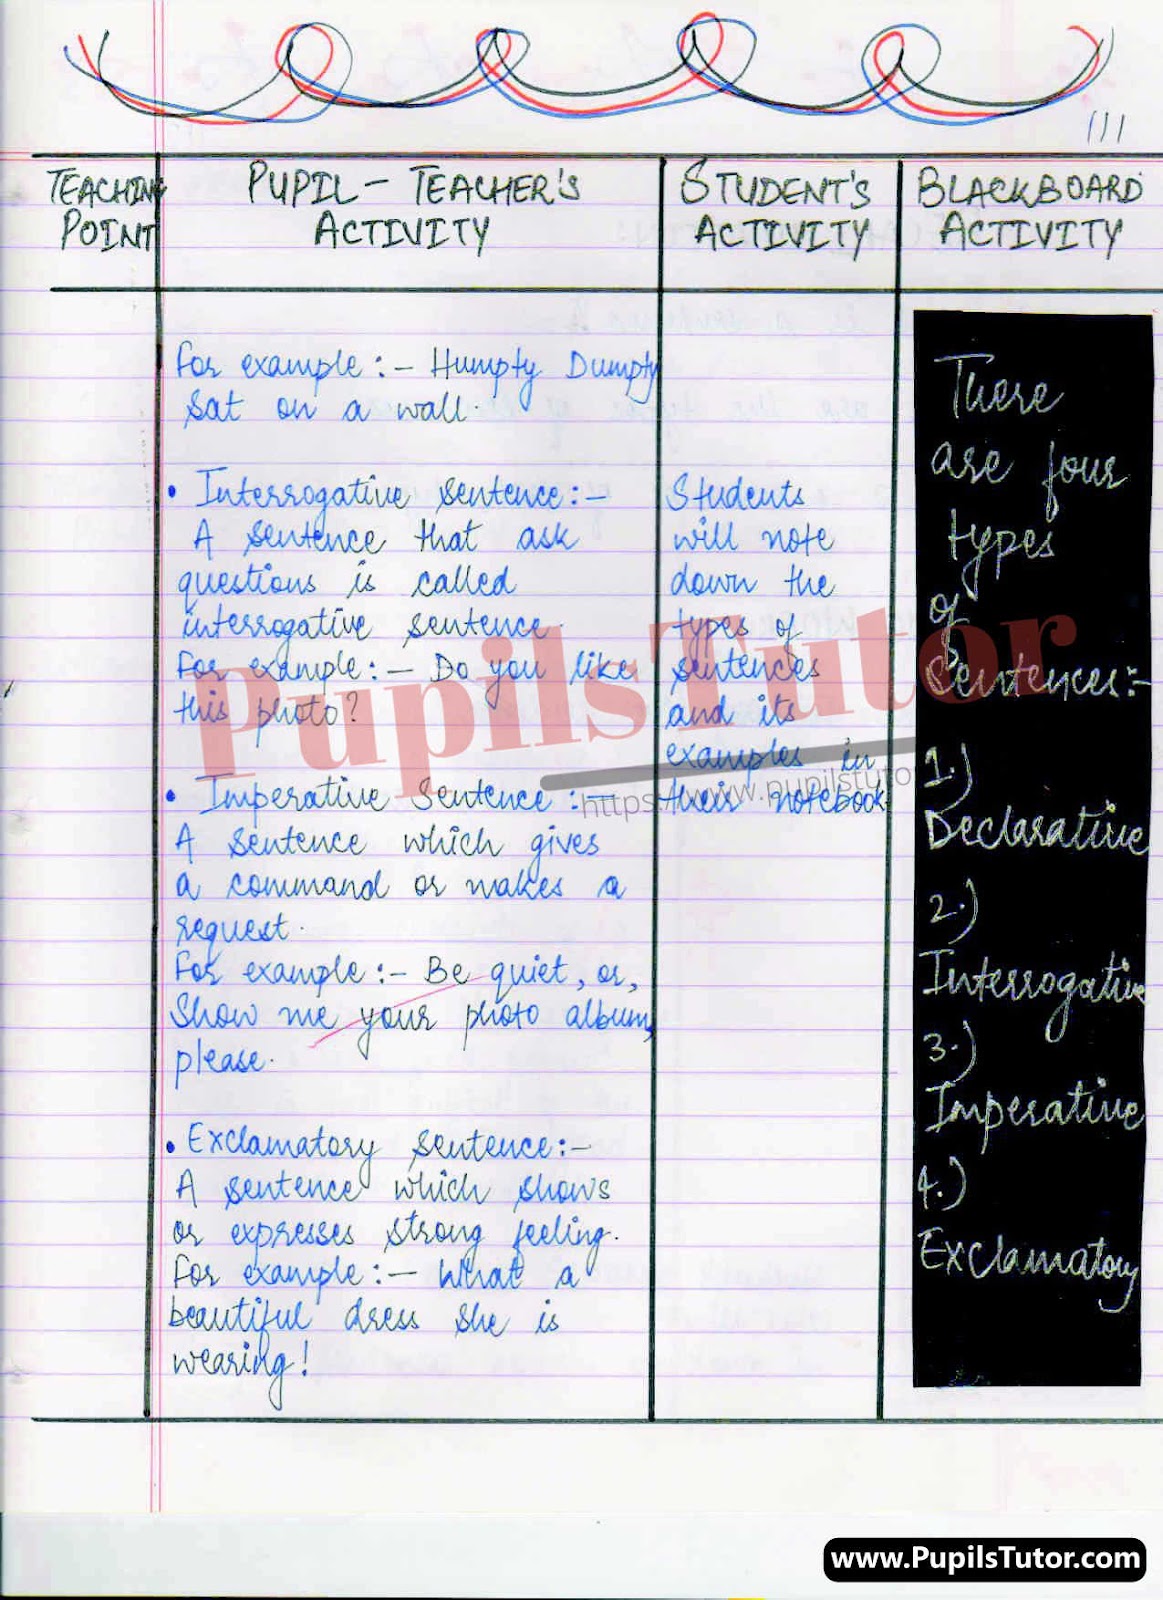 111
TEACHING
POINT
PUPIL - TEACHER'S
ACTIVITY
STUDENT'S
ACTIVITY
BLACKBOARD
ACTIVITY
For example :- Humpty Dumpty
sat on a wall.
• Interrogative sentence:-
A sentence that ask
questions is called
interrogative sentence.
For example :- Do you like
this photo?
• Imperative Sentence :-
A sentence which gives
a command or makes a
request.
For example :- Be quiet, or,
Show me your photo album,
please.
• Exclamatory sentence:-
A sentence which shows
or expresses strong feeling.
For example :- What a
beautiful dress she is
wearing!
Students
will note
down the
types of
sentences
and its
examples in
their notebook
There
are four
types
of
Sentences:-
1.)
Declarative
2.)
Interrogative
3.)
Imperative
4.)
Exclamatory
PupilsTutor
https://www.pupilstutor
www.PupilsTutor.com